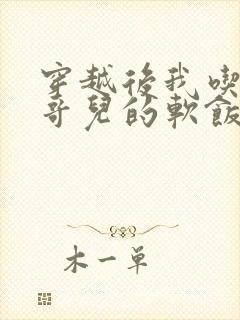 穿越後我喫
哥兒的軟飯
木一單